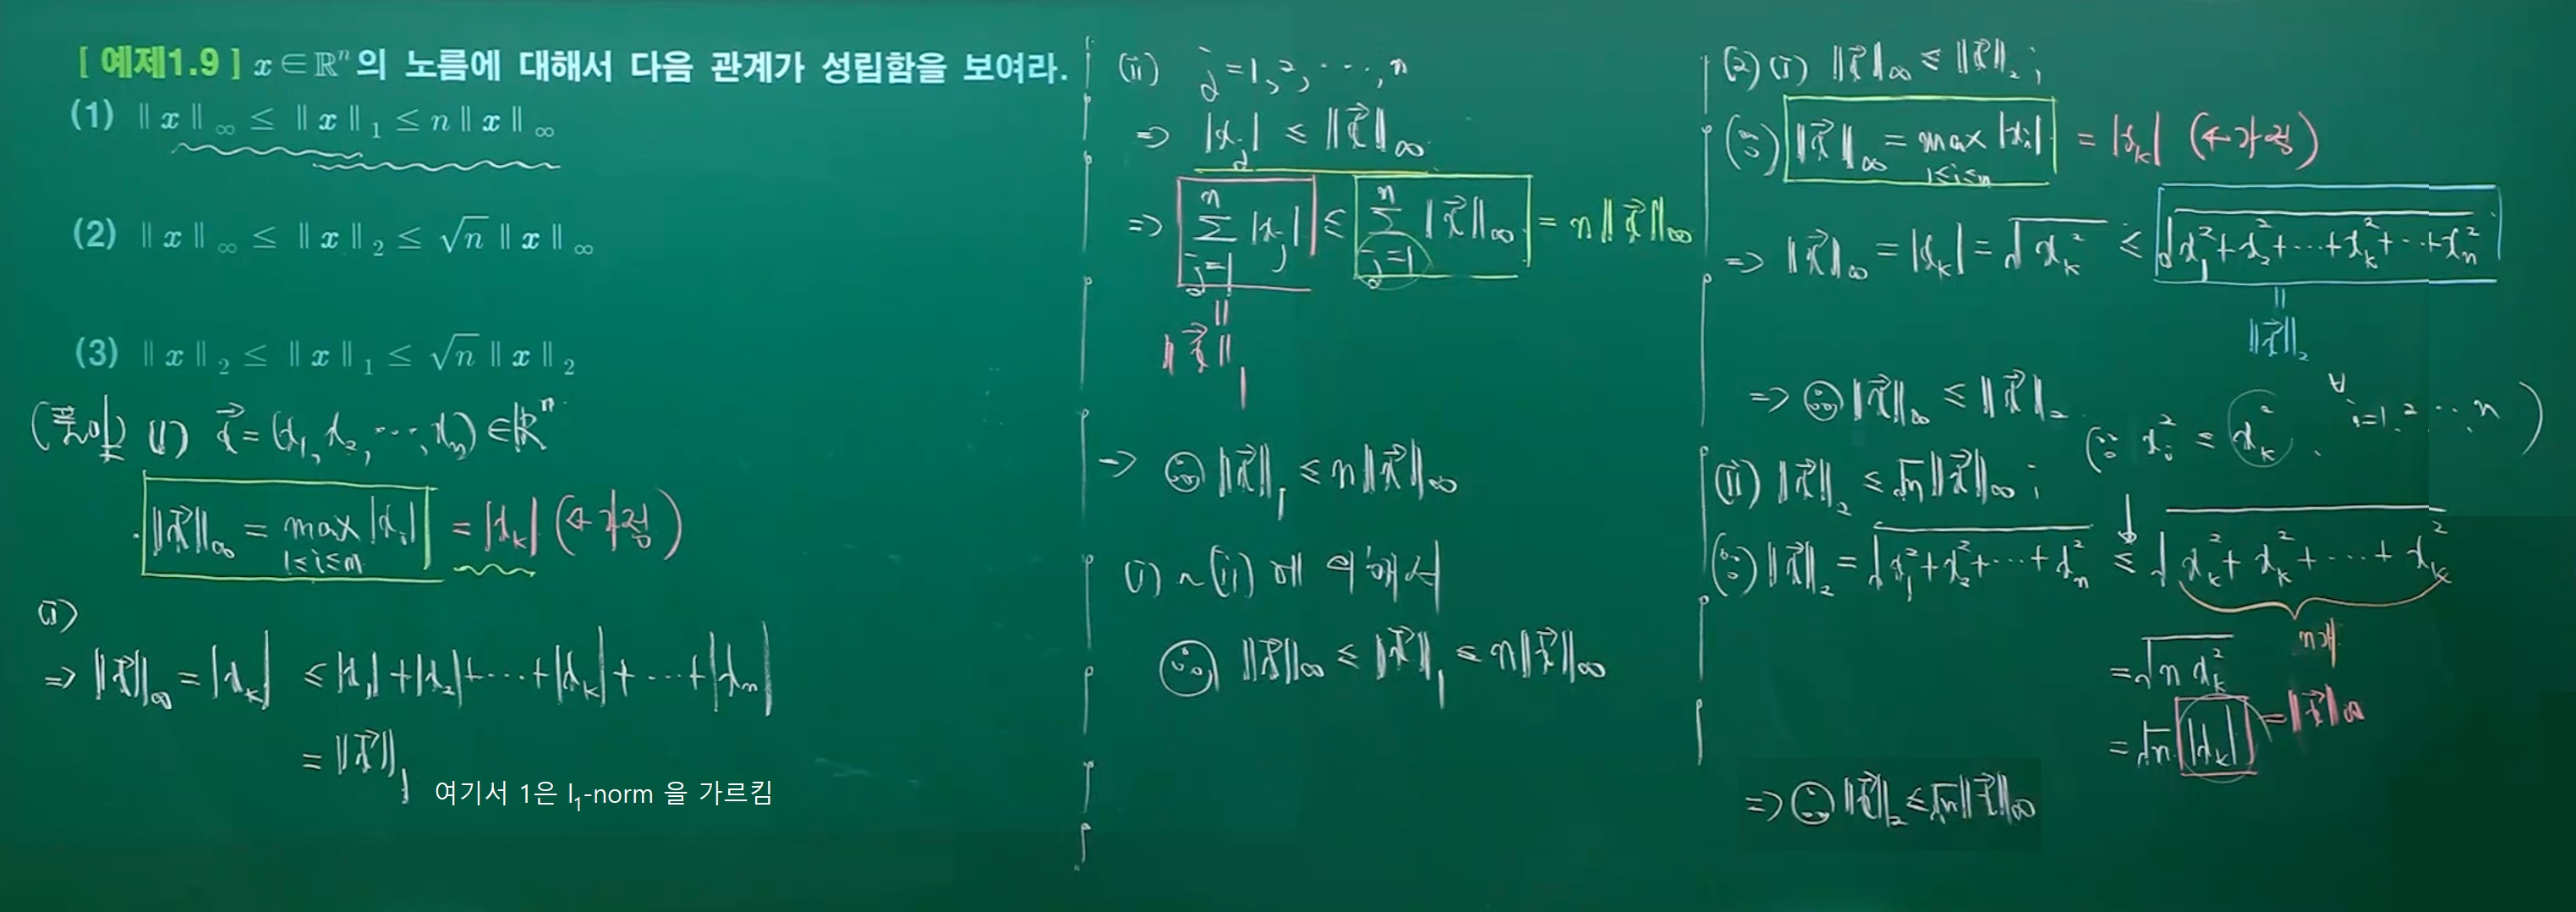 [ 예제1.9 ] x ∈ ℝⁿ의 노름에 대해서 다음 관계가 성립함을 보여라.
(1) ‖x‖∞ ≤ ‖x‖₁ ≤ n‖x‖∞
(2) ‖x‖∞ ≤ ‖x‖₂ ≤ √n ‖x‖∞
(3) ‖x‖₂ ≤ ‖x‖₁ ≤ √n ‖x‖₂
(풀이) (1) x⃗ = (x₁, x₂, ⋯, xₙ) ∈ ℝⁿ
‖x⃗‖∞ = max |xᵢ| = |xₖ| (← 가정)
1≤i≤n
(i)
⇒ ‖x⃗‖∞ = |xₖ| ≤ |x₁| + |x₂| + ⋯ + |xₖ| + ⋯ + |xₙ|
= ‖x⃗‖₁
여기서 1은 l₁-norm 을 가르킴
(ii) j = 1, 2, ⋯, n
⇒ |xⱼ| ≤ ‖x⃗‖∞
⇒ ∑ⱼ₌₁ⁿ |xⱼ| ≤ ∑ⱼ₌₁ⁿ ‖x⃗‖∞ = n‖x⃗‖∞
=
‖x⃗‖₁
⇒ ∴ ‖x⃗‖₁ ≤ n‖x⃗‖∞
(i) ~ (ii) 에 의해서
∴ ‖x⃗‖∞ ≤ ‖x⃗‖₁ ≤ n‖x⃗‖∞
(2) (i) ‖x⃗‖∞ ≤ ‖x⃗‖₂ ;
(∵) ‖x⃗‖∞ = max |xᵢ| = |xₖ| (← 가정)
1≤i≤n
⇒ ‖x⃗‖∞ = |xₖ| = √(xₖ²) ≤ √(x₁² + x₂² + ⋯ + xₖ² + ⋯ + xₙ²)
=
‖x⃗‖₂
⇒ ∴ ‖x⃗‖∞ ≤ ‖x⃗‖₂
(∵ xᵢ² ≤ xₖ², ∀i=1, 2, ⋯, n)
(ii) ‖x⃗‖₂ ≤ √n ‖x⃗‖∞ ;
(∵) ‖x⃗‖₂ = √(x₁² + x₂² + ⋯ + xₙ²) ≤ √(xₖ² + xₖ² + ⋯ + xₖ²)
n개
= √(n xₖ²)
= √n |xₖ| = ‖x⃗‖∞
⇒ ∴ ‖x⃗‖₂ ≤ √n ‖x⃗‖∞